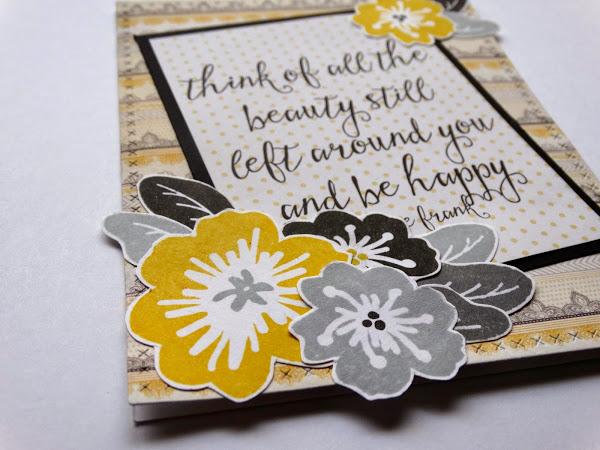 think of all the
beauty still
left around you
and be happy
frank